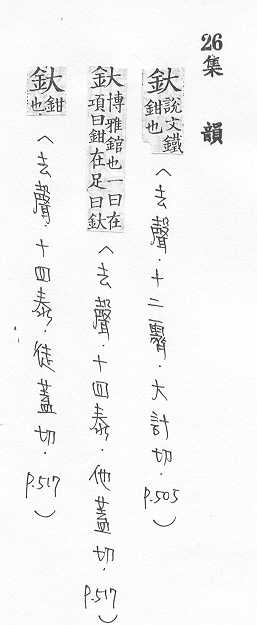 26集 韻
釱 說文鐵鉗也 〈去聲．十二霽．大計切．P.505〉
釱 博雅錧也一曰在項曰鉗在足曰釱 〈去聲．十四泰．他蓋切．P.517〉
釱 鉗也 〈去聲．十四泰．徒蓋切．P.517〉